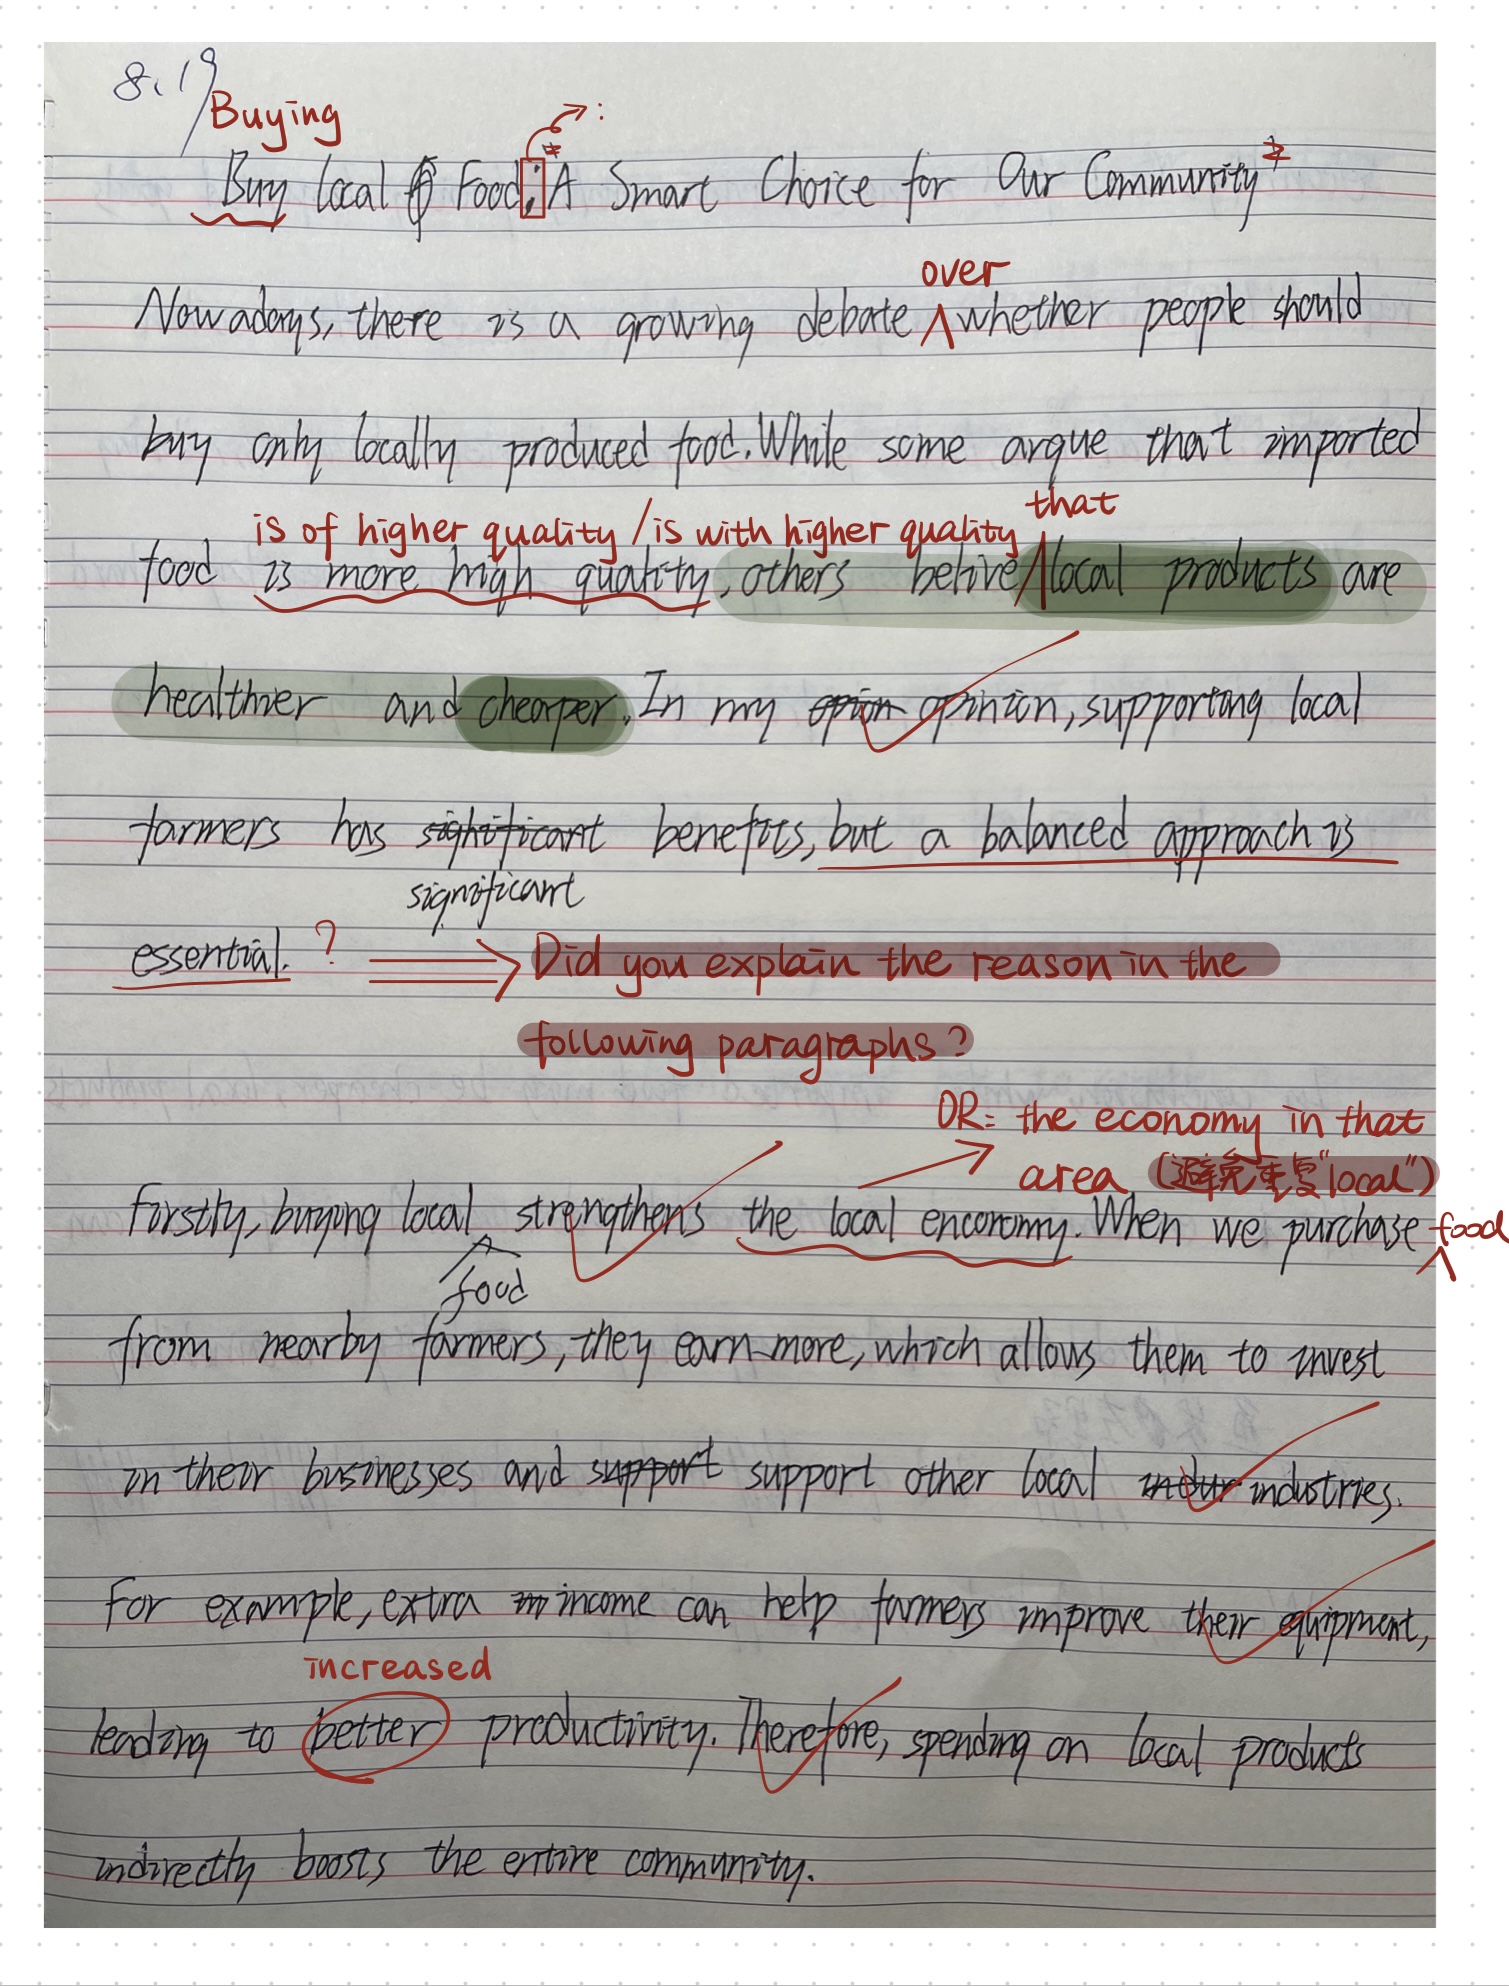 8.19
Buying
:
Buy local Food; A Smart Choice for Our Community
over
Nowadays, there is a growing debate whether people should
buy only locally produced food. While some argue that imported
that
is of higher quality / is with higher quality
food is more high quality, others belive local products are
healthier and cheaper. In my opion opinion, supporting local
farmers has significant benefits, but a balanced approach is
significant
essential. ? Did you explain the reason in the
following paragraphs?
OR: the economy in that
area (避免重复"local")
Firstly, buying local strengthens the local enconomy. When we purchase food
food
from nearby farmers, they earn more, which allows them to invest
in their businesses and support support other local indur industries.
For example, extra income can help farmers improve their equipment,
increased
leading to better productivity. Therefore, spending on local products
indirectly boosts the entire community.